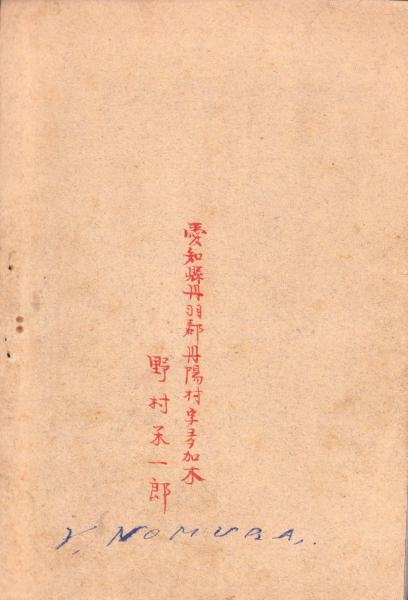 愛知縣丹羽郡丹陽村字多加木
野村 一郎
Y, NOMURA,.